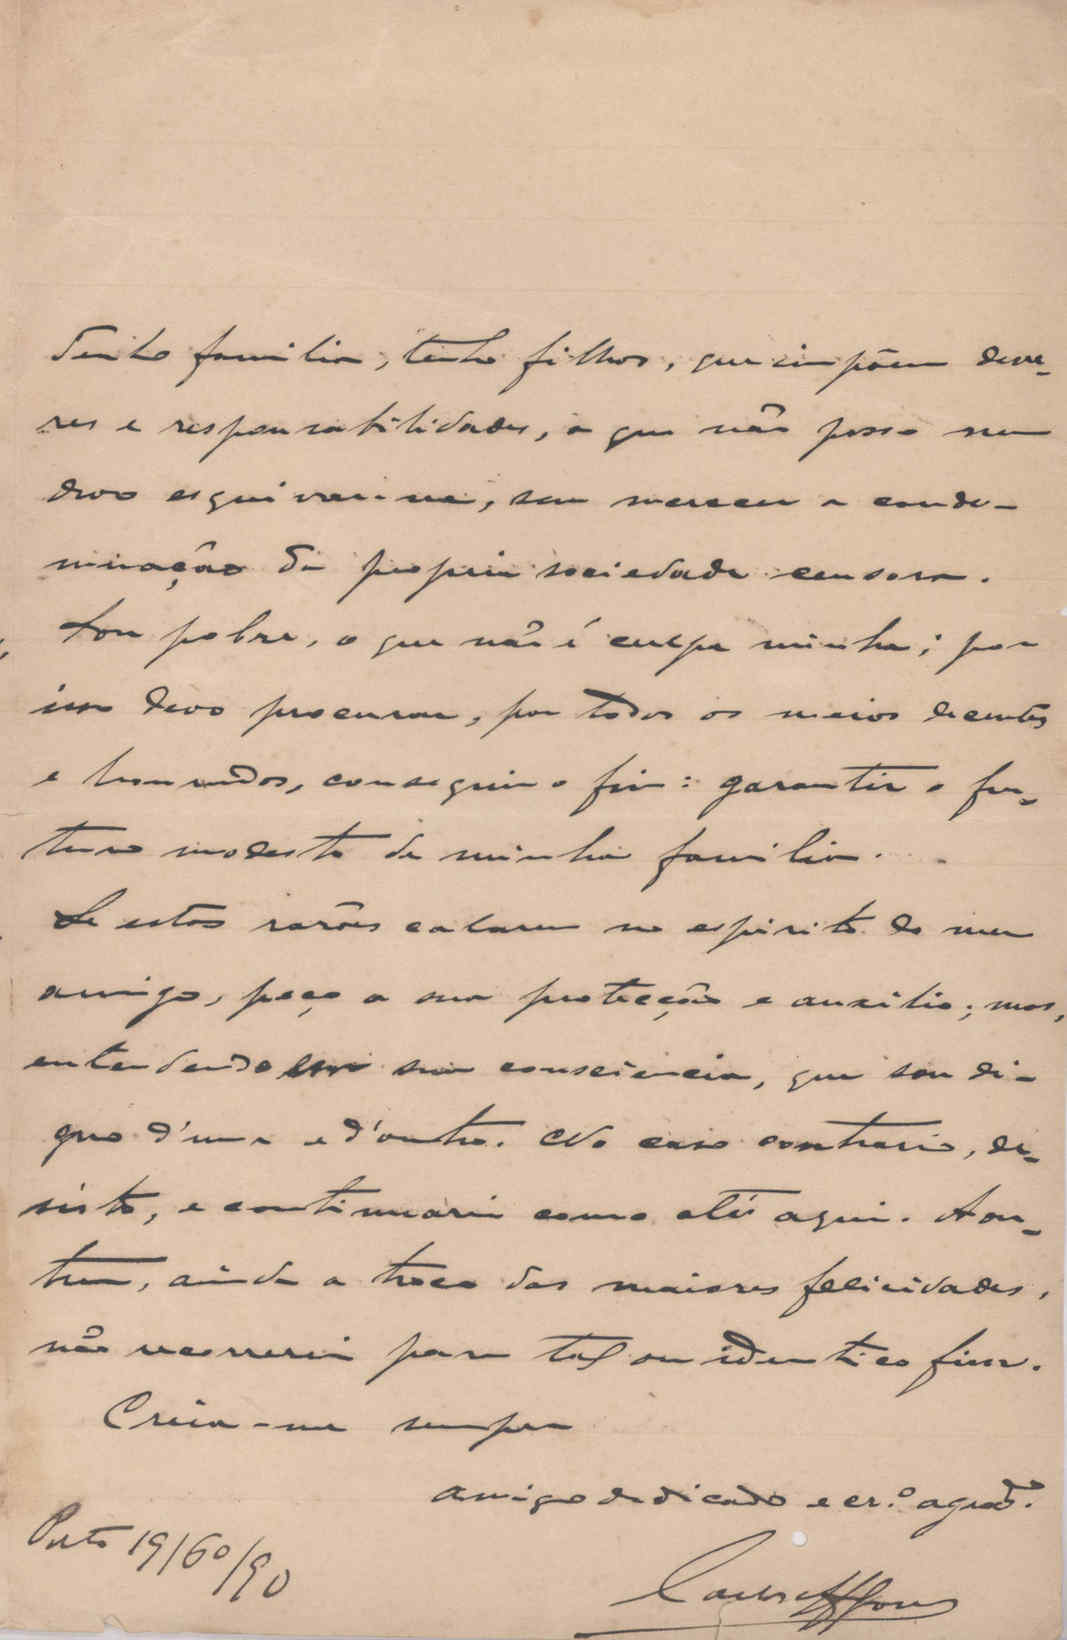 Tenho familia, tenho filhos, que impõem deve-
res e responsabilidades, a que não posso nem
devo esquivar-me, sem merecer a conde-
minação da propria sociedade censora.
Sou pobre, o que não é culpa minha; por
isso devo procurar, por todos os meios decentes
e honrados, conseguir o fim: garantir o fu-
turo modesto de minha familia.
Se estas rasões calarem no espirito do meu
amigo, peço a sua protecção e auxilio; mas,
entendendo em sua consciencia, que sou di-
gno d'uma e d'outro. No caso contrario, de-
sisto, e continuarei como até aqui. A ou-
trem, ainda a troco das maiores felicidades,
não recorrerei para tal ou identico fim.
Creia-me sempre
amigo dedicado e cr.º agrad.º
Porto 19/6º/90